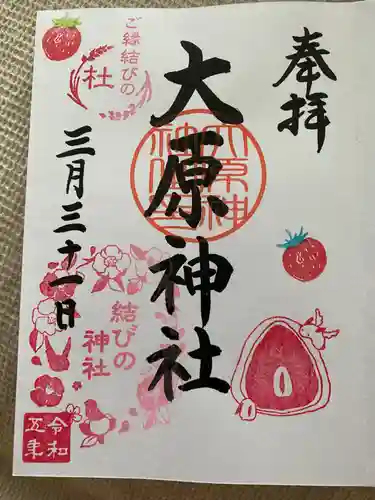 奉拝
大原神社
ご縁結びの
杜
三月三十一日
結びの
神社
令和
五年